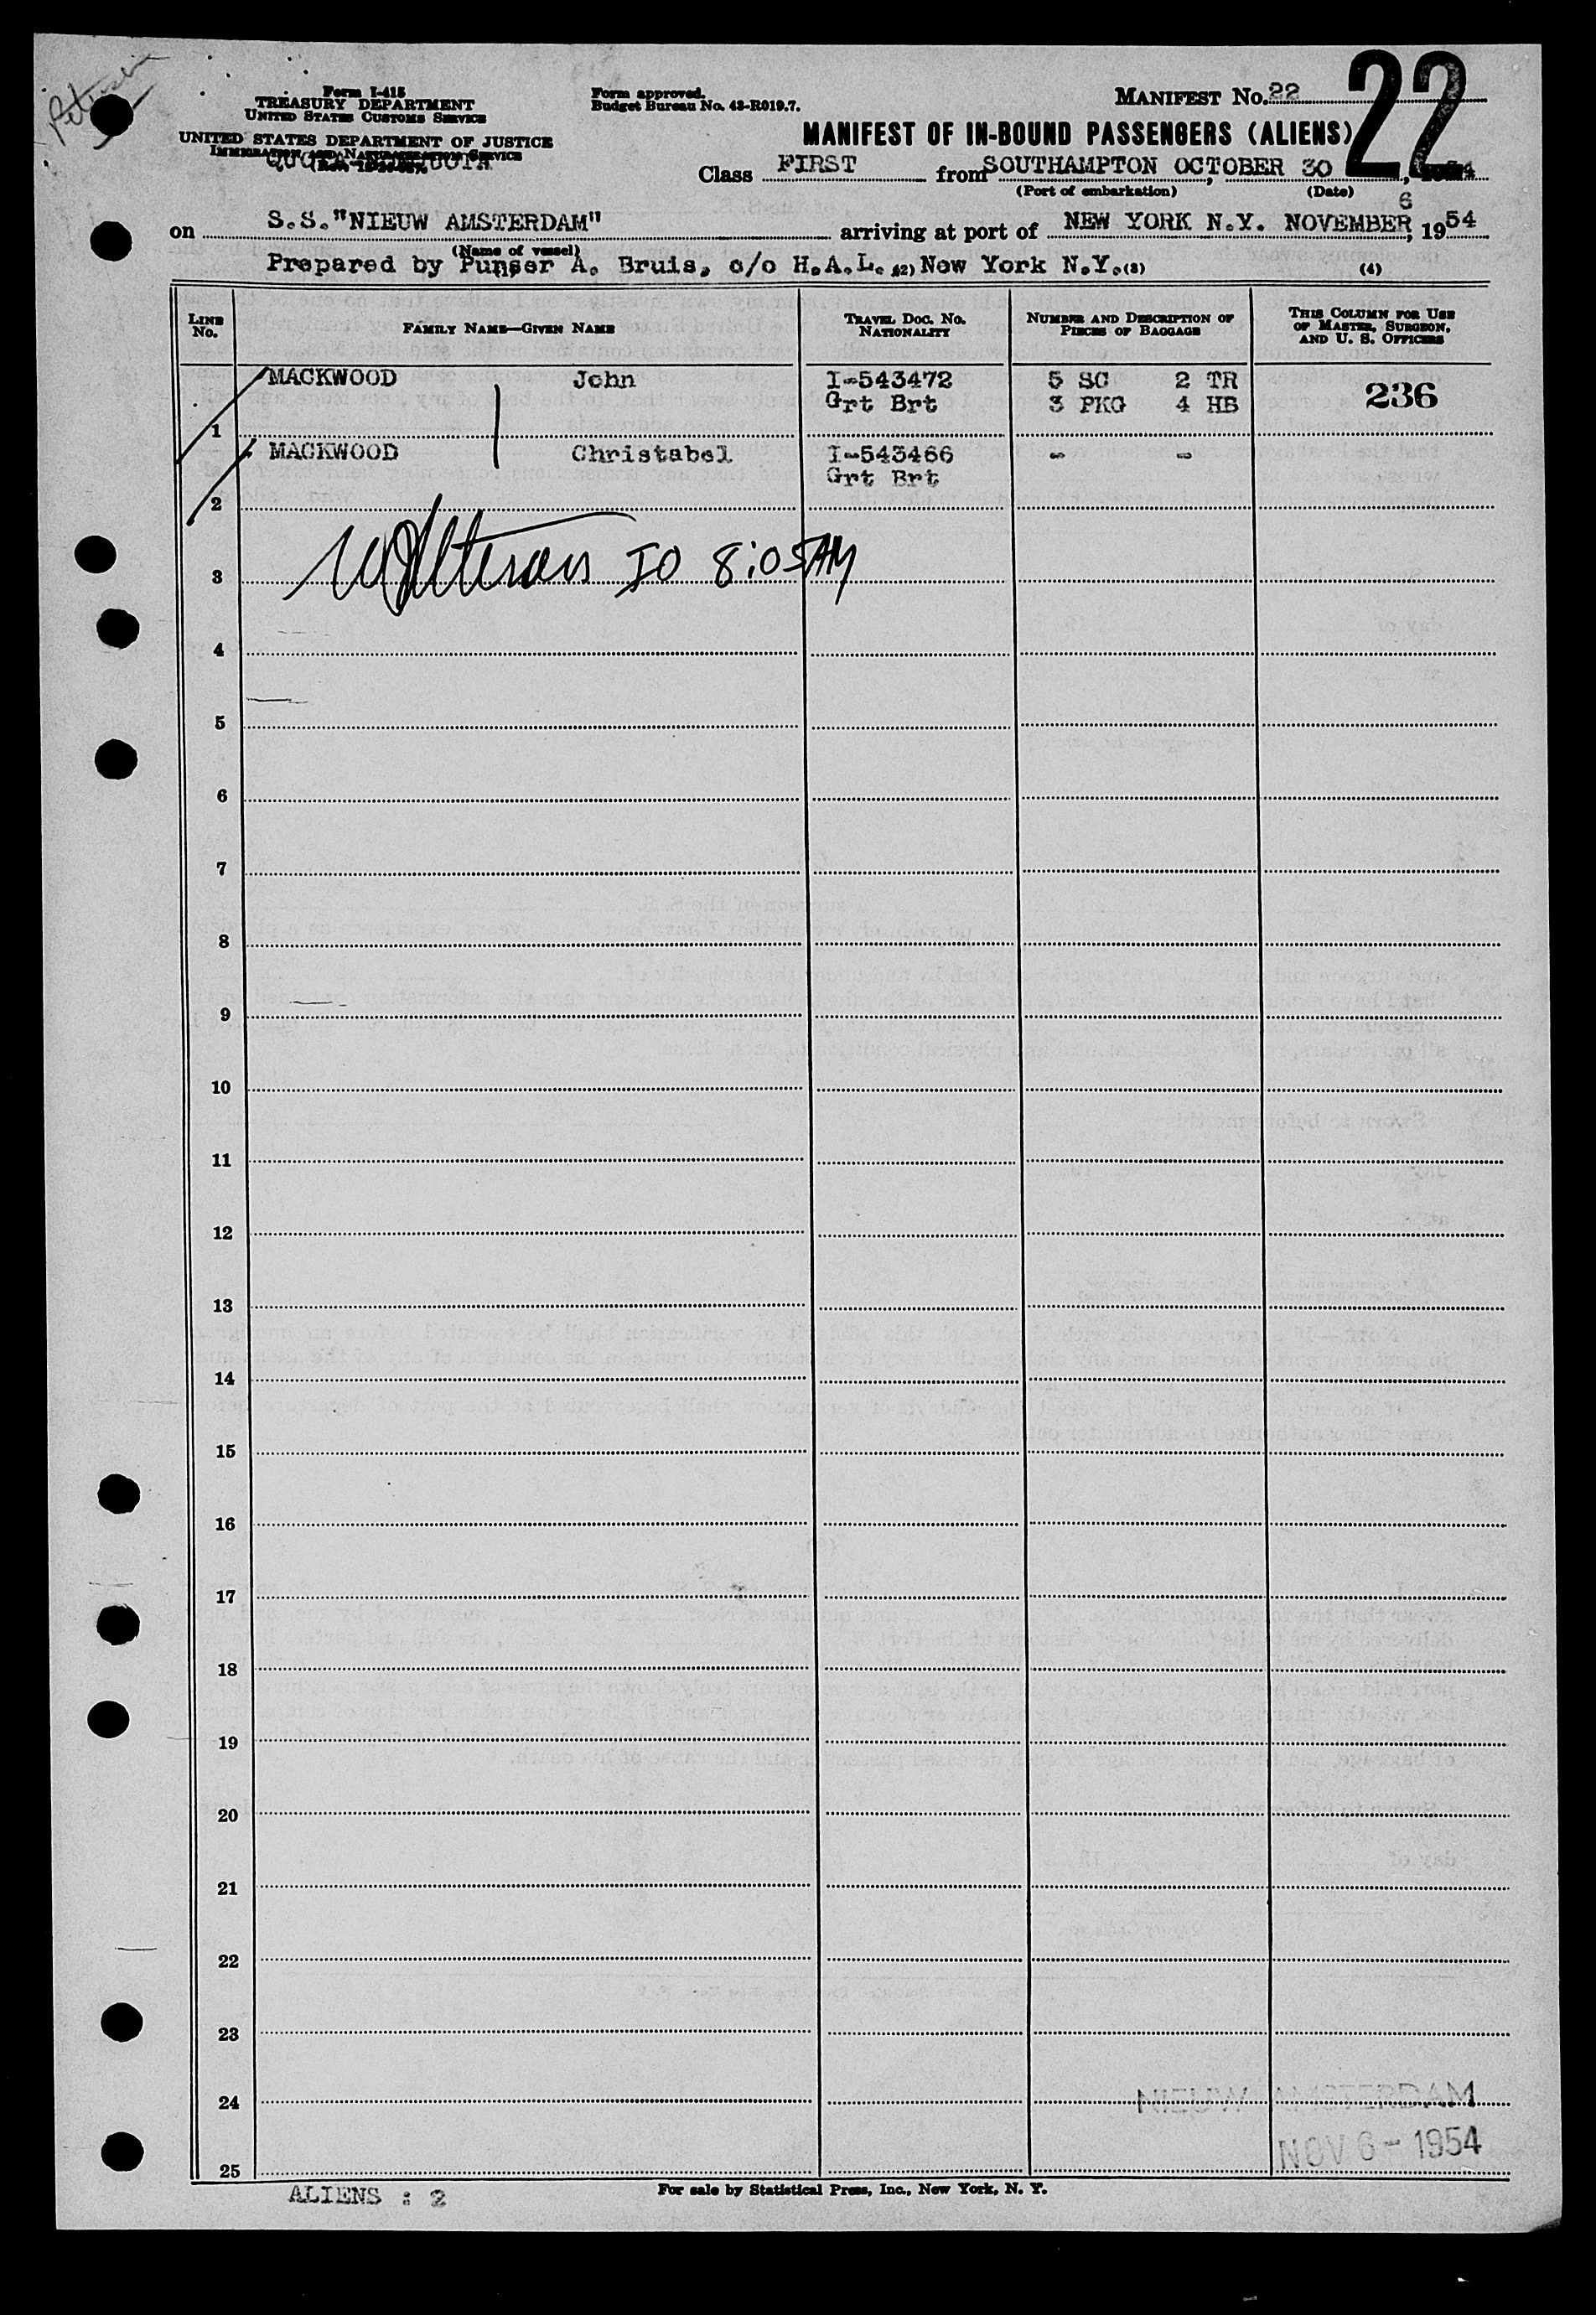 Form I-415
TREASURY DEPARTMENT
UNITED STATES CUSTOMS SERVICE
UNITED STATES DEPARTMENT OF JUSTICE
IMMIGRATION AND NATURALIZATION SERVICE
Form approved.
Budget Bureau No. 43-R019.7.
MANIFEST No. 22
22
MANIFEST OF IN-BOUND PASSENGERS (ALIENS)
Class FIRST from SOUTHAMPTON OCTOBER 30, 1954
(Port of embarkation) (Date)
on S.S."NIEUW AMSTERDAM" arriving at port of NEW YORK N.Y. NOVEMBER 6, 1954
(Name of vessel)
Prepared by Purser A. Bruis, c/o H.A.L. (2) New York N.Y. (3) (4)
LINE No. FAMILY NAME—GIVEN NAME TRAVEL DOC. No. NATIONALITY NUMBER AND DESCRIPTION OF PIECES OF BAGGAGE THIS COLUMN FOR USE OF MASTER, SURGEON, AND U. S. OFFICERS
MACKWOOD John I-543472 5 SC 2 TR 236
Grt Brt 3 PKG 4 HB
1
MACKWOOD Christabel I-543466 - -
Grt Brt
2
3 IO 8:05AM
4
5
6
7
8
9
10
11
12
13
14
15
16
17
18
19
20
21
22
23
24 NIEUW AMSTERDAM
NOV 6 - 1954
25
ALIENS : 2
For sale by Statistical Press, Inc., New York, N. Y.